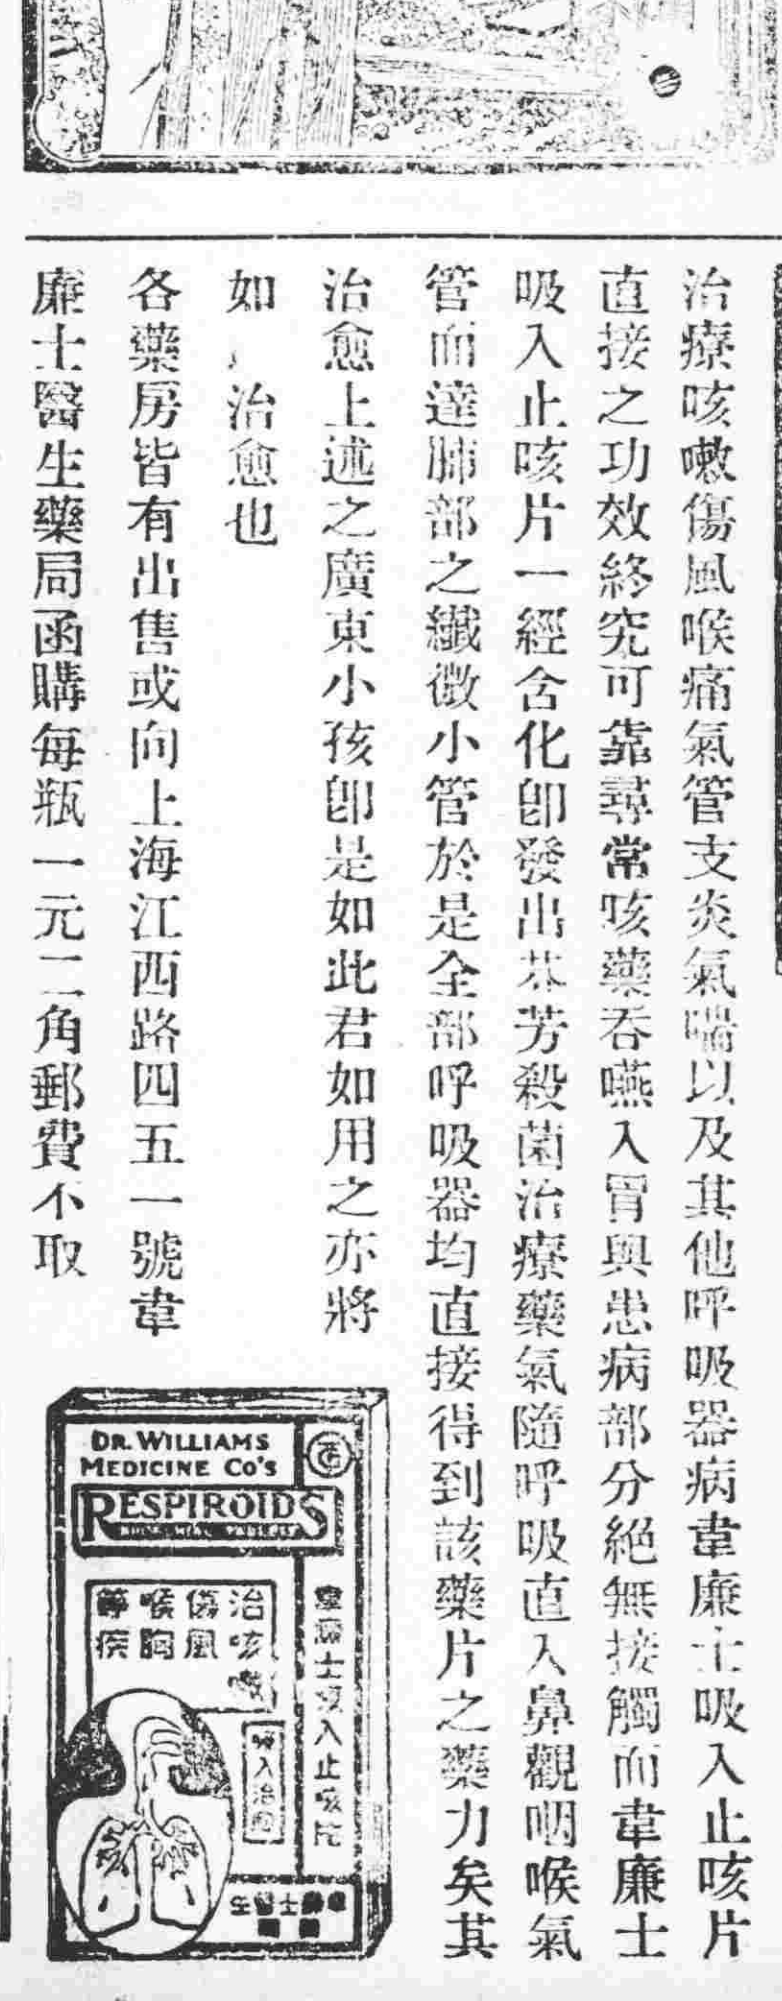 治療咳嗽傷風喉痛氣管支炎氣喘以及其他呼吸器病韋廉士吸入止咳片
直接之功效終究可靠尋常咳藥吞嚥入胃與患病部分絕無接觸而韋廉士
吸入止咳片一經含化卽發出芬芳殺菌治療藥氣隨呼吸直入鼻觀咽喉氣
管而達肺部之纖微小管於是全部呼吸器均直接得到該藥片之藥力矣其
治愈上述之廣東小孩卽是如此君如用之亦將
如 治愈也
各藥房皆有出售或向上海江西路四五一號韋
廉士醫生藥局函購每瓶一元二角郵費不取
DR. WILLIAMS
MEDICINE CO'S
RESPIROIDS
治咳嗽
傷風
喉胸
等疾
韋廉士吸入止咳片